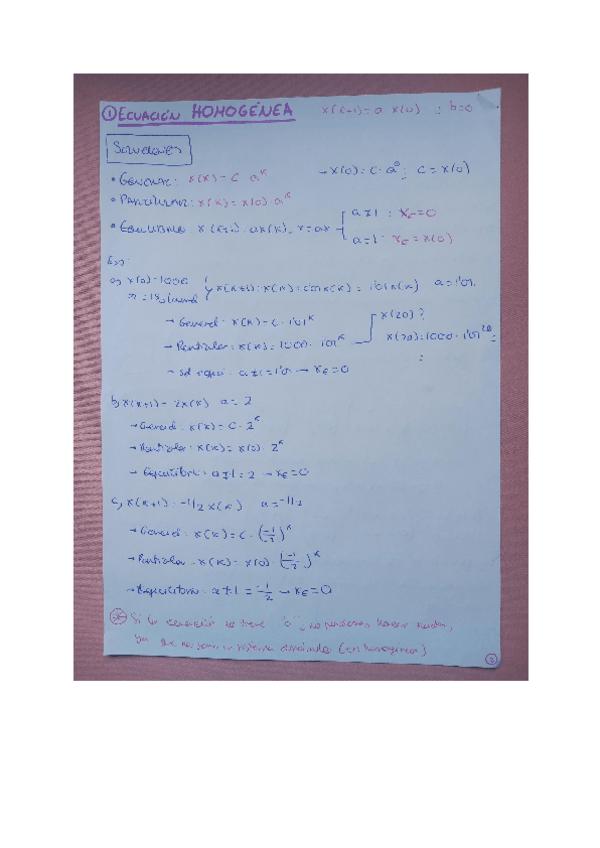 ① ECUACIÓN HOMOGÉNEA x(k+1)= a x(0) ; b=0
SOLUCIONES
• GENERAL: x(k)= C · a^k → x(0)= C · a^0 ; C = x(0)
• PARTICULAR: x(k)= x(0) · a^k
• EQUILIBRIO x(k+1)= ax(k), x=ax
a≠1 : x_E=0
a=1 : x_E = x(0)
a) x(0)=1000 x(k+1)= x(k) + 0'01 x(k) = 1'01 x(k) a=1'01
→ General: x(k)= C · 1'01^k x(20)?
→ Particular: x(k)= 1000 · 1'01^k x(20)=1000 · 1'01^20 =
→ Sol equi: a≠1=1'01 → x_E=0
b) x(k+1)= 2x(k) a=2
→ General: x(k)= C · 2^k
→ Particular: x(k)= x(0) · 2^k
→ Equilibrio: a≠1=2 → x_E=0
c) x(k+1)= -1/2 x(k) a=-1/2
→ General: x(k)= C · (-1/2)^k
→ Particular: x(k)= x(0) · (-1/2)^k
→ Equilibrio: a≠1 = -1/2 → x_E=0
Si la ecuación no tiene "a", no podemos hacer nada,
ya que no es un sistema dinámico (en homogénea)